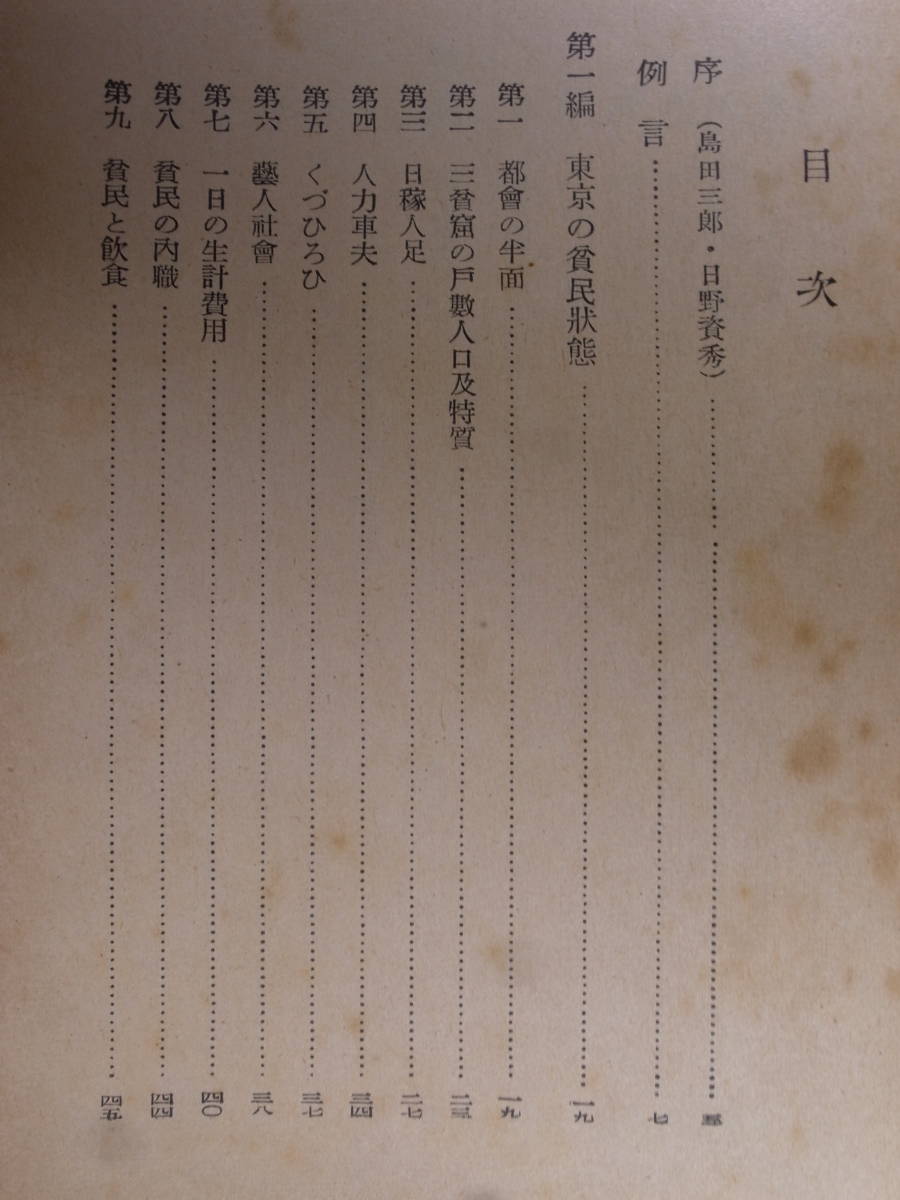 目次
序（島田三郎・日野資秀）……五
例言……七
第一編 東京の貧民狀態……一九
第一 都會の半面……一九
第二 三貧窟の戶數人口及特質……二三
第三 日稼人足……二七
第四 人力車夫……三四
第五 くづひろひ……三七
第六 藝人社會……三八
第七 一日の生計費用……四〇
第八 貧民の內職……四四
第九 貧民と飮食……四五